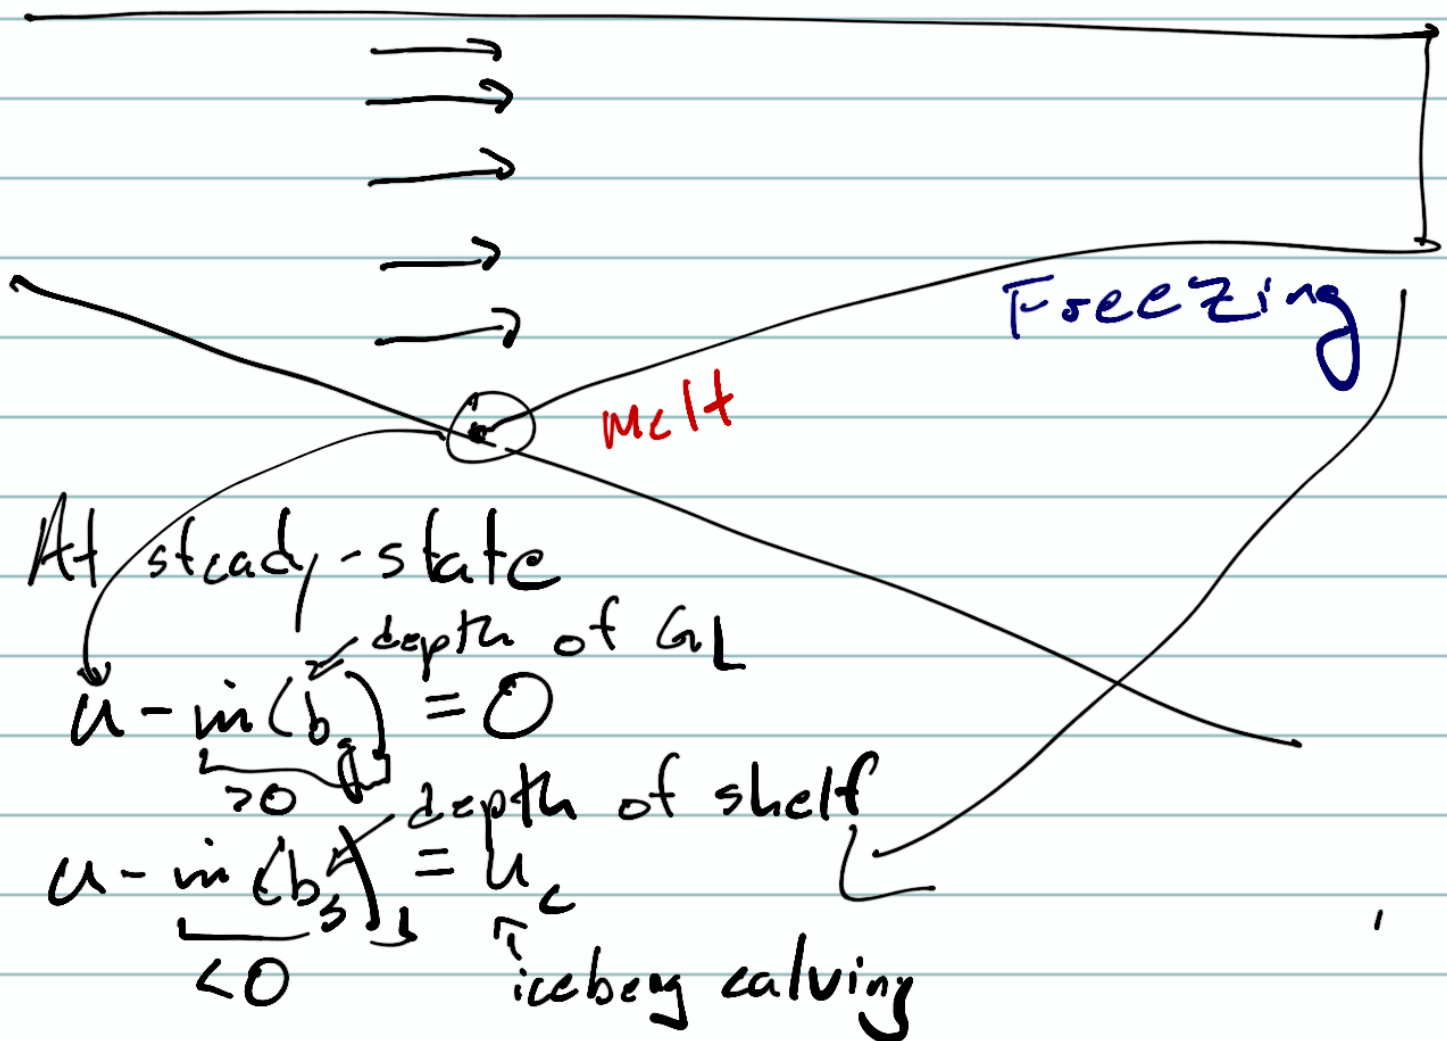 Freezing
Melt
At steady-state
depth of GL
u - ṁ(b_g) = 0
>0
depth of shelf
u - ṁ(b_s) = u_c
<0
iceberg calving